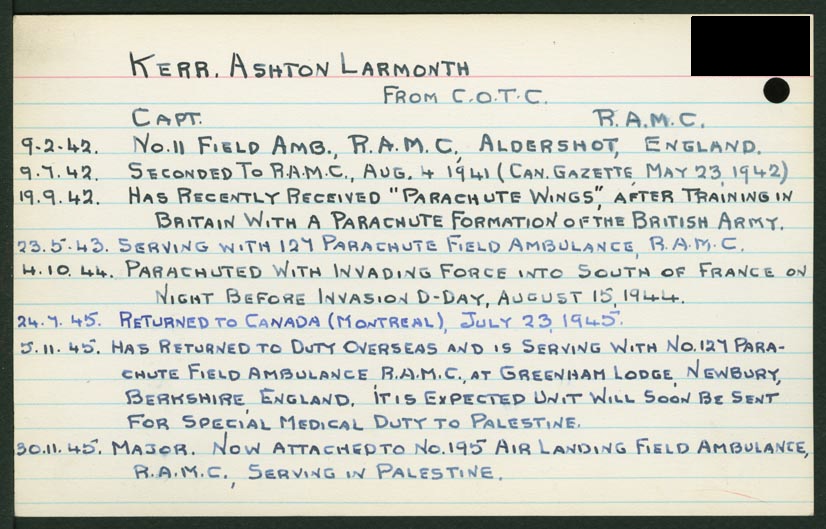 KERR, ASHTON LARMONTH
FROM C.O.T.C.
CAPT. R.A.M.C.
9.2.42. NO. 11 FIELD AMB., R.A.M.C., ALDERSHOT, ENGLAND.
9.7.42. SECONDED TO R.A.M.C., AUG. 4 1941 (CAN. GAZETTE, MAY 23, 1942)
19.9.42. HAS RECENTLY RECEIVED "PARACHUTE WINGS", AFTER TRAINING IN
BRITAIN WITH A PARACHUTE FORMATION OF THE BRITISH ARMY.
23.5.43. SERVING WITH 127 PARACHUTE FIELD AMBULANCE, R.A.M.C.
4.10.44. PARACHUTED WITH INVADING FORCE INTO SOUTH OF FRANCE ON
NIGHT BEFORE INVASION D-DAY, AUGUST 15, 1944.
24.7.45. RETURNED TO CANADA (MONTREAL), JULY 23, 1945.
5.11.45. HAS RETURNED TO DUTY OVERSEAS AND IS SERVING WITH NO. 127 PARA-
CHUTE FIELD AMBULANCE R.A.M.C., AT GREENHAM LODGE, NEWBURY,
BERKSHIRE, ENGLAND. IT IS EXPECTED UNIT WILL SOON BE SENT
FOR SPECIAL MEDICAL DUTY TO PALESTINE.
30.11.45. MAJOR. NOW ATTACHED TO NO. 195 AIR LANDING FIELD AMBULANCE,
R.A.M.C., SERVING IN PALESTINE.